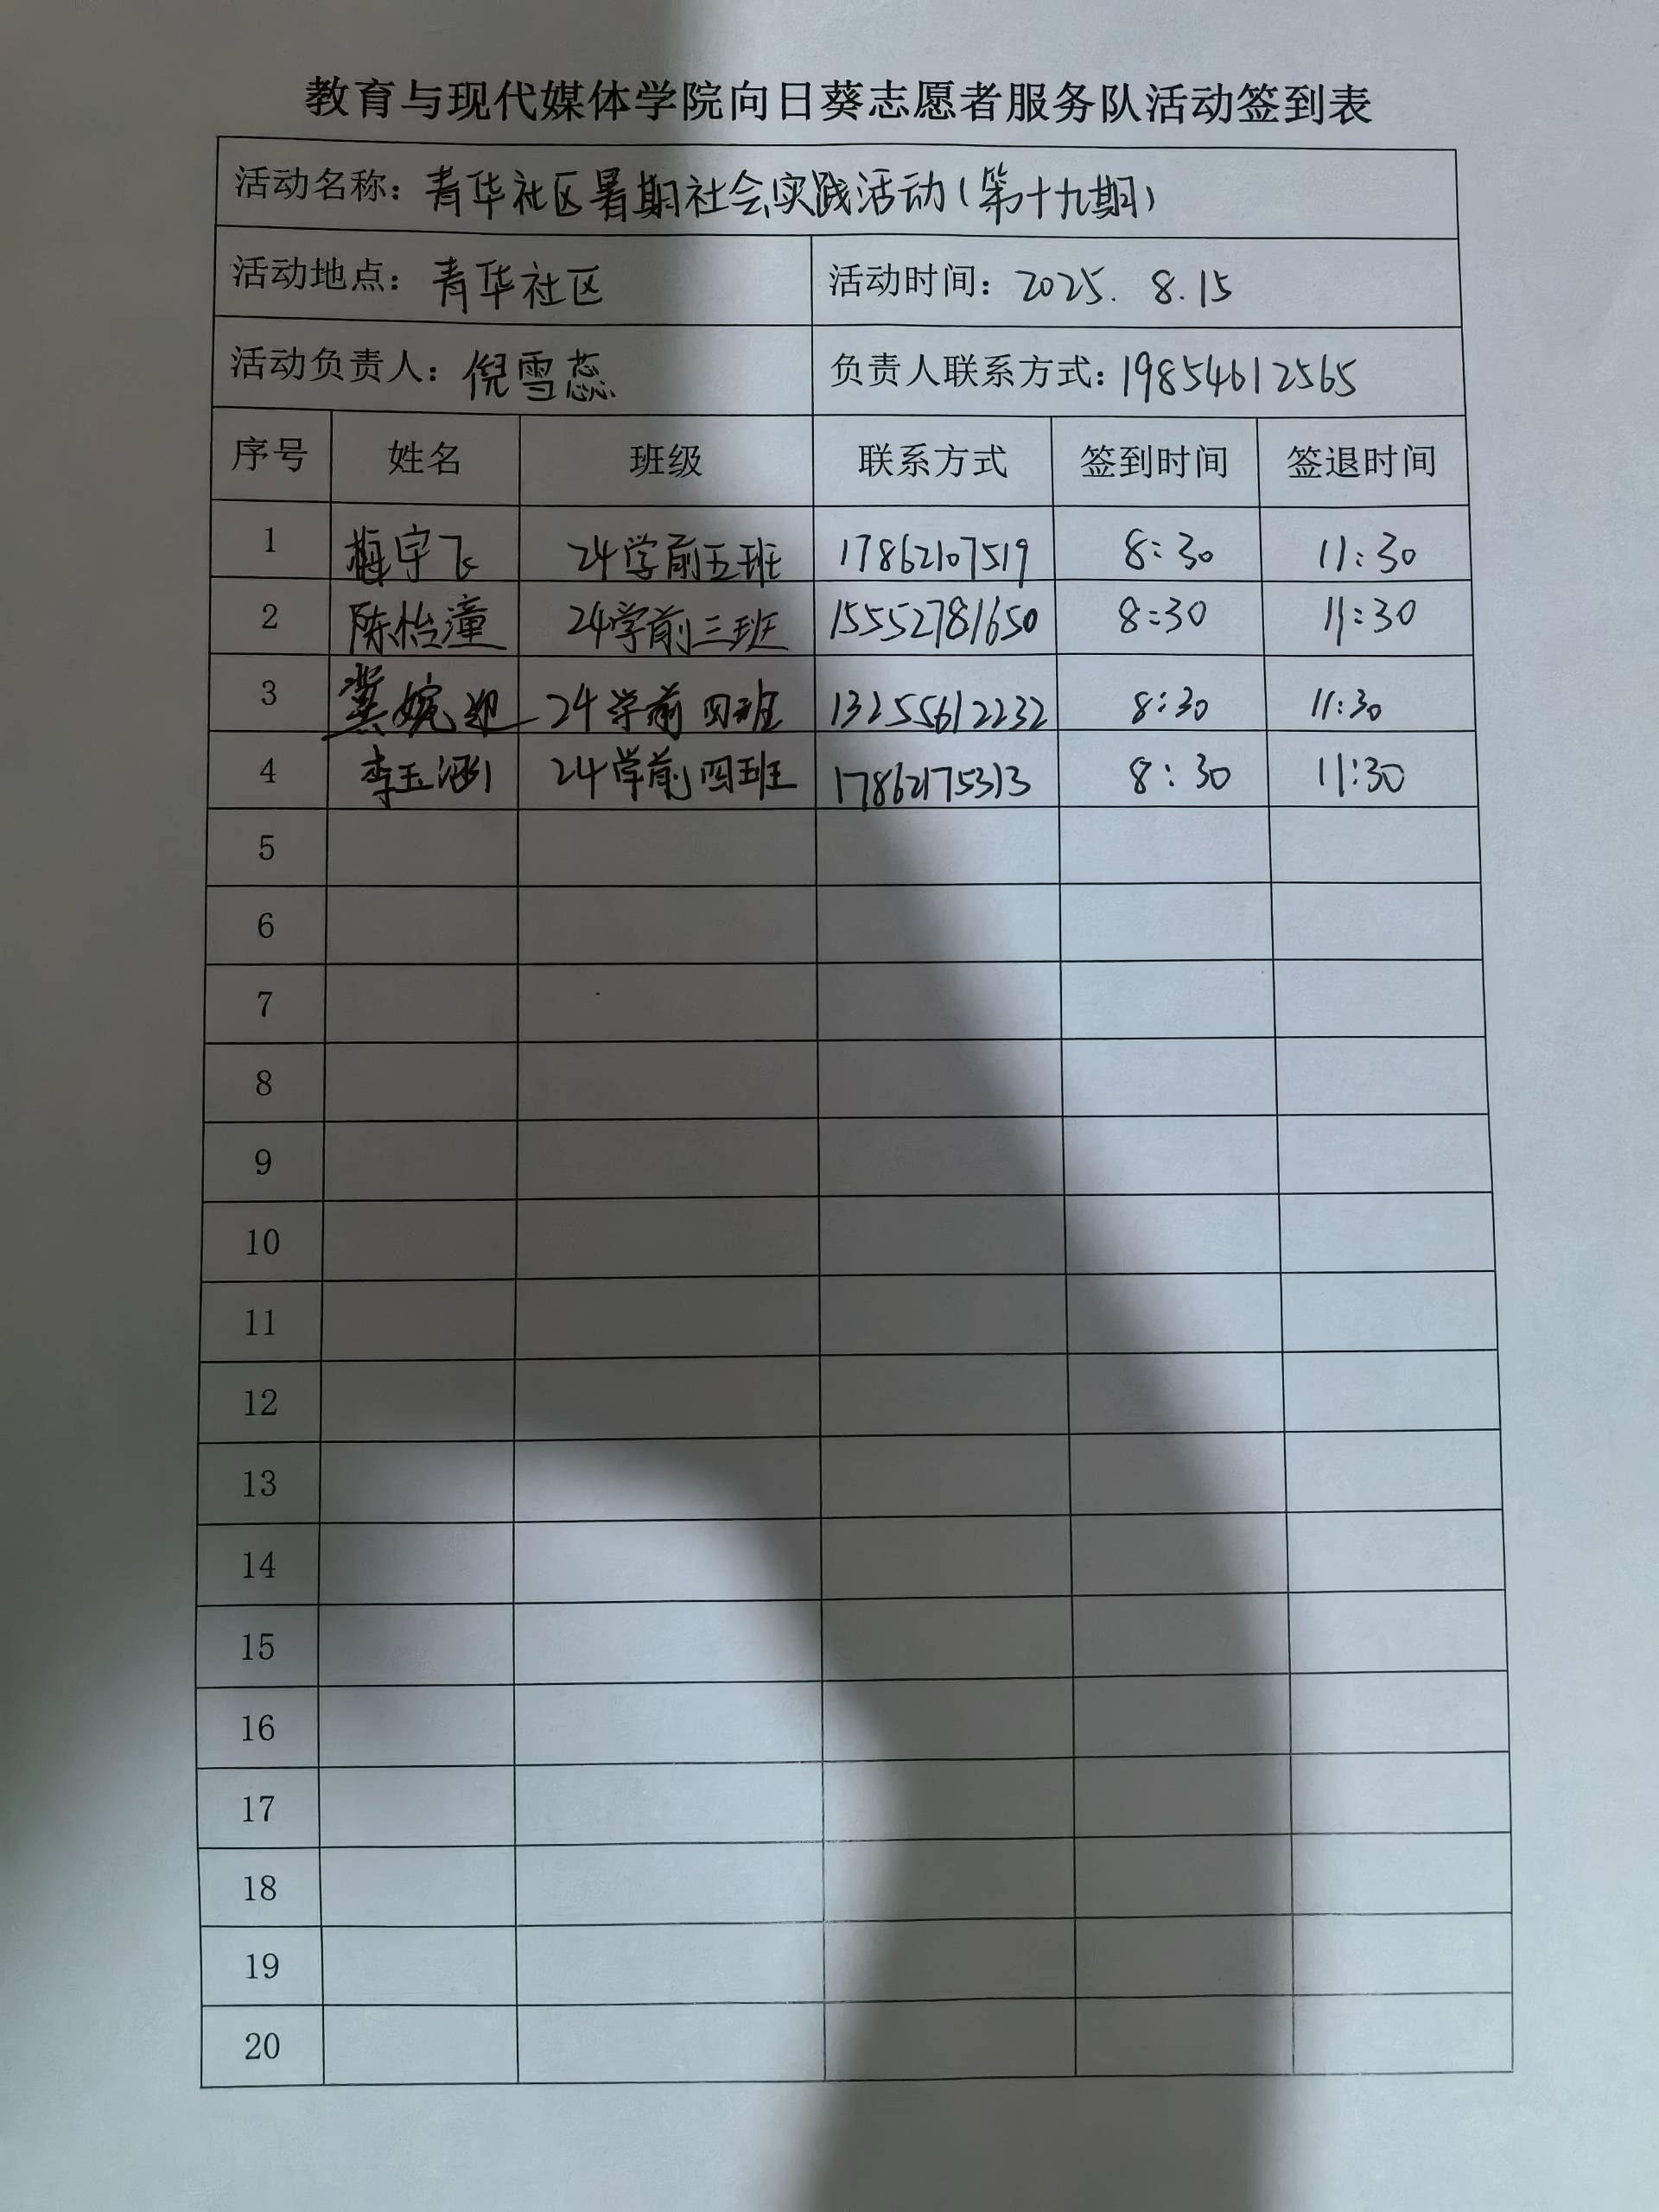 教育与现代媒体学院向日葵志愿者服务队活动签到表
活动名称：青华社区暑期社会实践活动（第十九期）
活动地点：青华社区 活动时间：2025. 8.15
活动负责人：倪雪蕊 负责人联系方式：19854612565
序号 姓名 班级 联系方式 签到时间 签退时间
1 梅宇飞 24学前五班 17862107519 8:30 11:30
2 陈怡潼 24学前三班 15552781650 8:30 11:30
3 冀婉迎 24学前四班 13255612232 8:30 11:30
4 李玉涵 24学前四班 17862175313 8:30 11:30
5
6
7
8
9
10
11
12
13
14
15
16
17
18
19
20